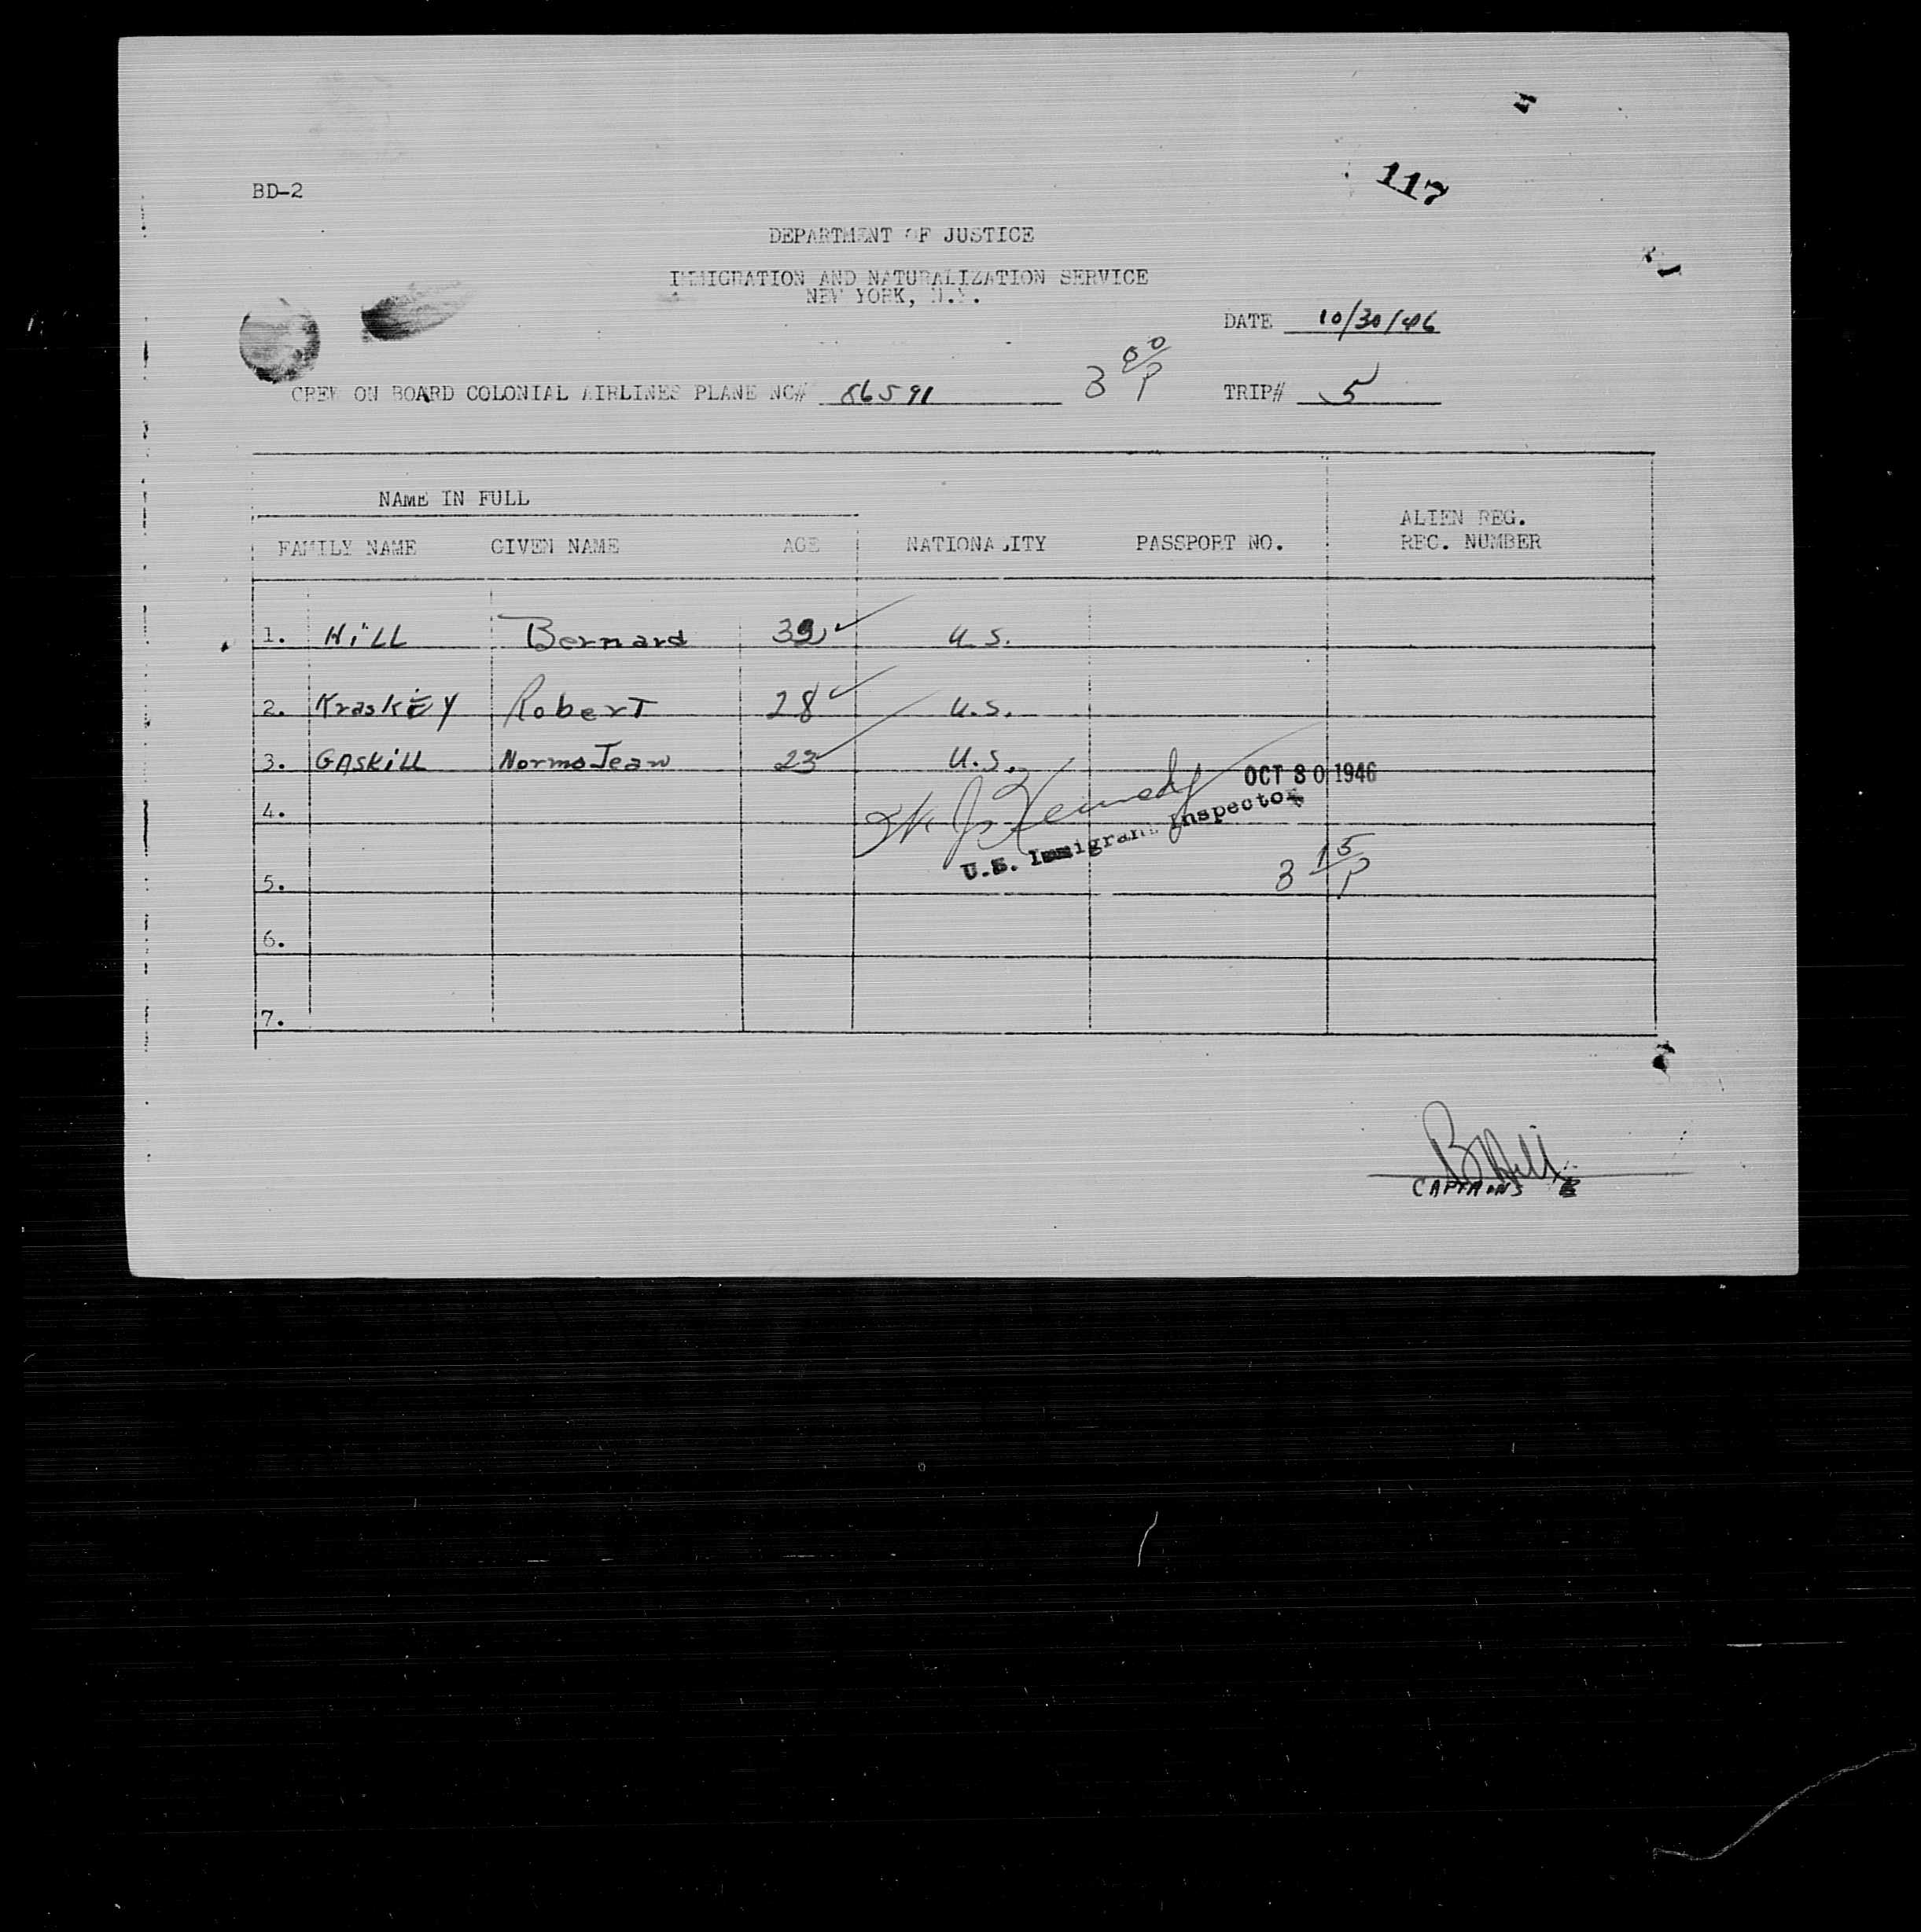 117
BD-2
DEPARTMENT OF JUSTICE
IMMIGRATION AND NATURALIZATION SERVICE
NEW YORK, N.Y.
DATE 10/30/46
CREW ON BOARD COLONIAL AIRLINES PLANE NC# 86591 3 00/P TRIP# 5
NAME IN FULL
FAMILY NAME GIVEN NAME AGE NATIONALITY PASSPORT NO. ALIEN REG. REC. NUMBER
1. Hill Bernard U.S.
2. Kraskey Robert 28 U.S.
3. GASKiLL Norma Jean 23 U.S.
OCT 30 1946
4. Kennedy
U.S. Immigrant Inspector
5. 3 15/P
6.
7.
B Hill
CAPTAINS